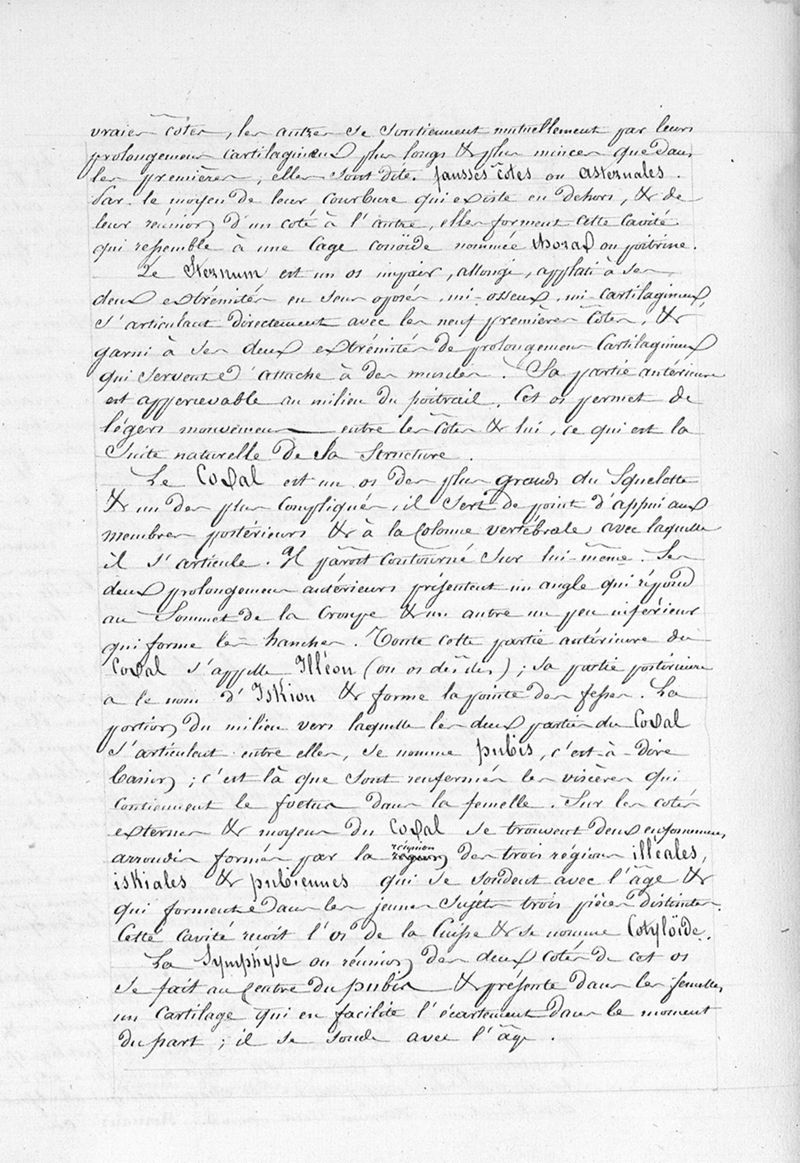 vraies côtes, les autres se soutiennent mutuellement par leurs
prolongemens cartilagineux plus longs & plus minces que dans
les premières, elles sont dites fausses côtes ou asternales.
Par le moyen de leur courbure qui existe en dehors, & de
leur réunion d'un coté à l'autre, elles forment cette cavité
qui ressemble à une cage conoïde nommée thorax ou poitrine.
Le Sternum est un os impair, allongé, applati à ses
deux extrémités en sens oposés, mi-osseux, mi-cartilagineux,
s'articulant directement avec les neuf premières côtes, &
garni à ses deux extrémités de prolongemens cartilagineux
qui servent d'attache à des muscles. Sa partie antérieure
est appercevable au milieu du poitrail. Cet os permet de
légers mouvemens entre les côtes & lui, ce qui est la
suite naturelle de sa structure.
Le Coxal est un os des plus grands du Squelette
& un des plus compliqués, il sert de point d'appui aux
membres postérieurs & à la colonne vertébrale avec laquelle
il s'articule. Il paroit contourné sur lui-même. Ses
deux prolongemens antérieurs présentent un angle qui répond
au sommet de la croupe & un autre un peu inférieur
qui forme les hanches. Toute cette partie antérieure du
Coxal s'appelle Illéon (ou os des iles); sa partie postérieure
a le nom d'Iskion & forme la pointe des fesses. La
portion du milieu vers laquelle les deux parties du Coxal
s'articulent entre elles, se nomme pubis, c'est-à-dire
bassin; c'est là que sont renfermés les viscères qui
contiennent le foetus dans la femelle. Sur les cotés
externes & moyens du Coxal se trouvent deux enfoncemens
arrondis formés par la réunion des trois régions illéales,
iskiales & pubiennes qui se soudent avec l'âge &
qui forment dans les jeunes sujets trois pièces distinctes.
Cette cavité reçoit l'os de la cuisse & se nomme Cotyloïde.
La Symphyse ou réunion des deux cotés de cet os
se fait au centre du pubis & présente dans les femelles,
un cartilage qui en facilite l'écartement dans le moment
du part; il se soude avec l'âge.